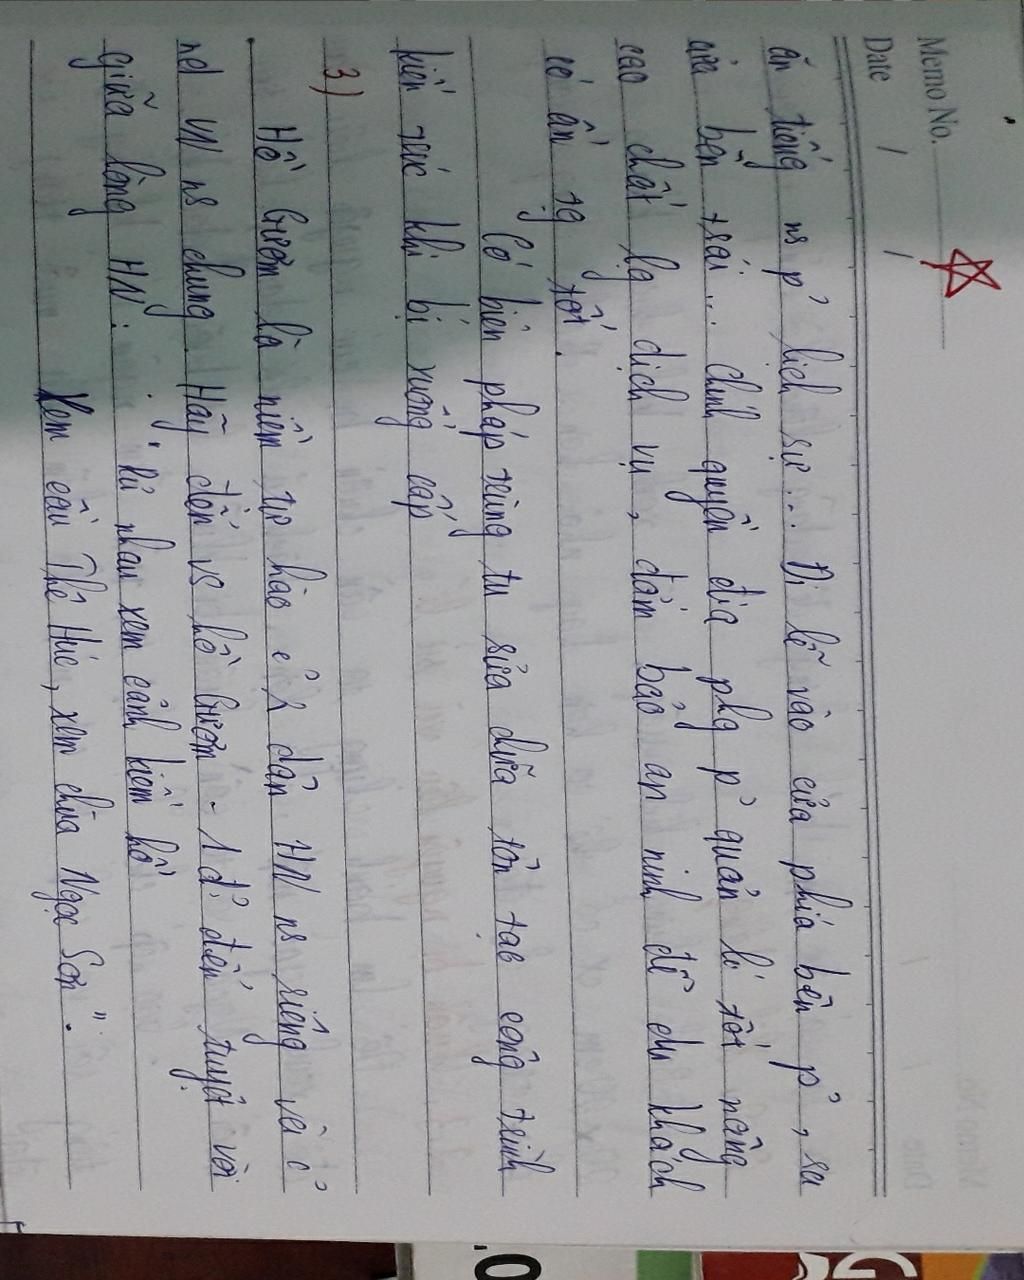 Memo No.
Date / /
ăn tiếng ns p' lịch sự... Đi lễ vào cửa phía bên p', ra
cửa bên trái... chính quyền địa phg p' quản lí tốt nâng
cao chất lg dịch vụ, đảm bảo an ninh để du khách
có ấn tg tốt.
Có biện pháp trùng tu sửa chữa tôn tạo công trình
kiến trúc khi bị xuống cấp
3)
Hồ Gươm là niềm tự hào dân HN ns riêng và
nd VN ns chung. Hãy đến vs hồ Gươm - 1 đ' đến tuyệt vời
giữa lòng HN:
"Rủ nhau xem cảnh kiếm hồ
Xem cầu Thê Húc, xem chùa Ngọc Sơn".